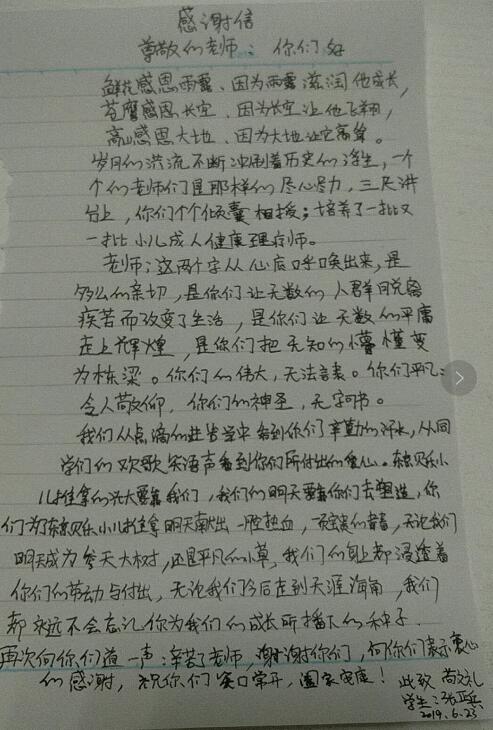 感谢信
尊敬的老师：你们好
鲜花感恩雨露、因为雨露滋润他成长，
苍鹰感恩长空、因为长空让他飞翔，
高山感恩大地、因为大地让它高耸。
岁月的洪流不断冲刷着历史的 一个
个的老师们是那样的尽心尽力，三尺讲
台上，你们个个倾囊相授；培养了一批又
一批小儿成人健康理疗师。
老师；这两个字从心底呼唤出来，是
多么的亲切，是你们让无数的人群脱离
疾苦而改变了生活，是你们让无数的平庸
走上辉煌，是你们把无知的懵懂变
为栋梁。你们的伟大，无法言表。你们平凡：
令人敬仰，你们的神圣，无字书。
我们从点滴的进步当中看到你们辛勤的汗水，从同
学们的欢歌笑语声看到你们所付出的 东京贝乐小
儿推拿的光大要靠我们，我们的明天要靠你们去塑造，你
们为了东京贝乐小儿推拿明天献出一腔热血， 无论我们
明天成为参天大树，还是平凡的小草，我们的身上都浸透着
你们的劳动与付出，无论我们今后走到天涯海角，我们
都永远不会忘记你为我们的成长所播下的种子.
再次向你们道一声：辛苦了老师，谢谢你们，向你们表示衷心
的感谢，祝你们笑口常开，阖家安康！ 此致 敬礼
学生：张亚兵
2019.6.23